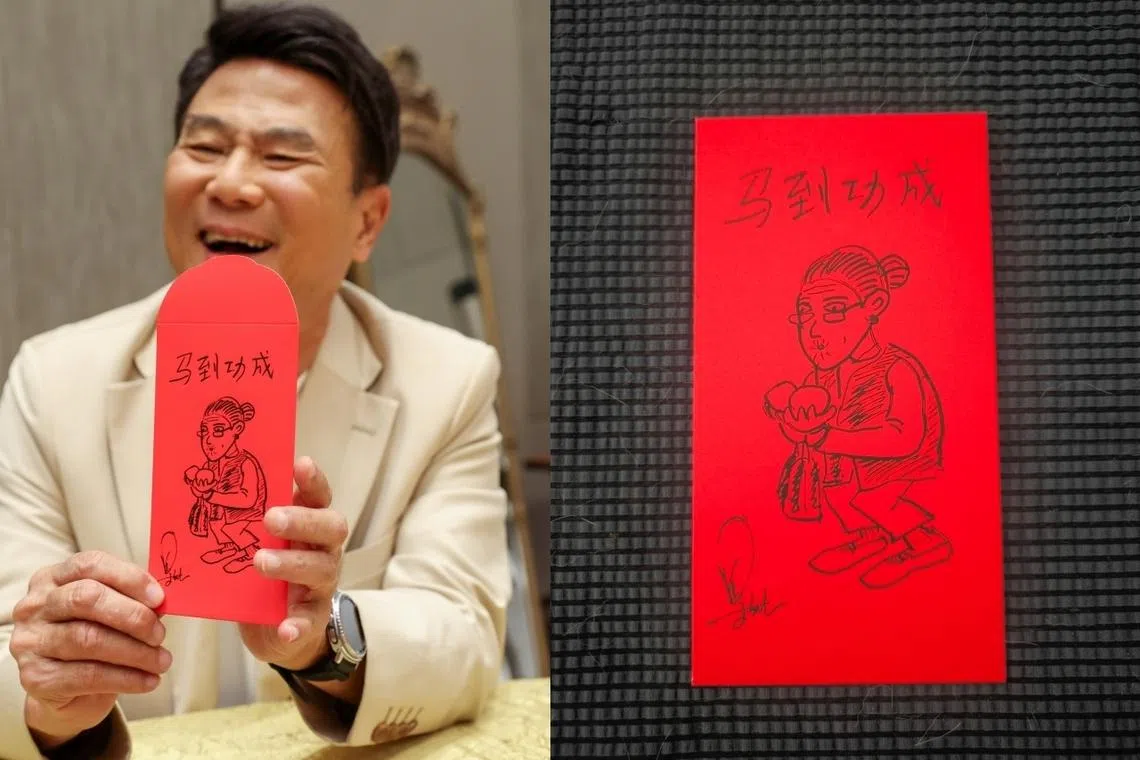 马到功成
马到功成